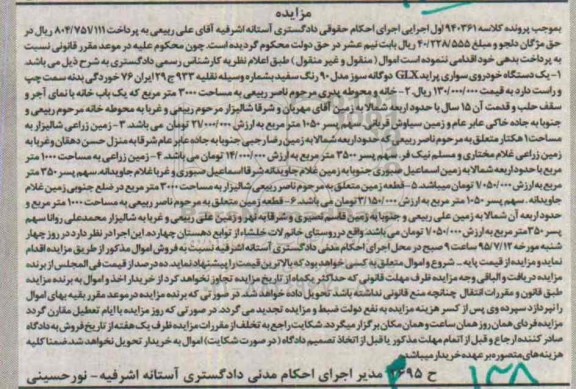 مزایده
بموجب پرونده کلاسه ۹۴۰۳۶۱ اول اجرایی اجرای احکام حقوقی دادگستری آستانه اشرفیه آقای علی ربیعی به پرداخت ۸۰۴/۷۵۷/۱۱۱ ریال در
حق مژگان دلجو و مبلغ ۴۰/۲۳۸/۵۵۵ ریال بابت نیم عشر در حق دولت محکوم گردیده است. چون محکوم علیه در موعد مقرر قانونی نسبت
به پرداخت بدهی خود اقدامی ننموده است اموال ( منقول و غیر منقول ) طبق اعلام نظریه کارشناس رسمی دادگستری به شرح ذیل می باشد.
۱- یک دستگاه خودروی سواری پراید GLX دوگانه سوز مدل ۹۰ رنگ سفید بشماره وسیله نقلیه ۹۳۳ ج ۲۹ ایران ۷۶ خوردگی بدنه سمت چپ
و راست دارد به قیمت ۱۳۰/۰۰۰/۰۰۰ ریال. ۲- خانه و محوطه پدری مرحوم ناصر ربیعی به مساحت ۳۰۰۰ متر مربع که یک باب خانه با نمای آجر و
سقف حلب و قدمت آن ۱۵ سال با حدود اربعه شمالا به زمین آقای مهربان و شرقا شالیزار مرحوم ربیعی و غربا به محوطه خانه مرحوم ربیعی و
جنوبا به جاده خاکی عابر عام و زمین سیاوش ربیعی. سهم پسر ۱۰۵۰ متر مربع به ارزش ۳۱/۰۰۰/۰۰۰ تومان می باشد. ۳- زمین زراعی شالیزار به
مساحت ۱ هکتار متعلق به مرحوم ناصر ربیعی که حدود اربعه شمالا به زمین رضا رجبی جنوبا به جاده عابر عام شرقا به منزل حسن دهقان و غربا به
زمین زراعی غلام مختاری و مسلم نیک فر. سهم پسر ۳۵۰۰ متر مربع به ارزش ۱۴/۰۰۰/۰۰۰ تومان می باشد. ۴- زمین زراعی به مساحت ۱۰۰۰ متر
مربع با حدود اربعه شمالا به زمین اسماعیل صبوری جنوبا به زمین غلام جاویدانه شرقا اسماعیل صبوری و غربا غلام جاویدانه. سهم پسر ۳۵۰ متر
مربع به ارزش ۷/۰۵۰/۰۰۰ تومان میباشد. ۵- قطعه زمین متعلق به مرحوم ناصر ربیعی شالیزار به مساحت ۳۰۰۰ متر مربع در ضلع جنوبی زمین غلام
جاویدانه. سهم پسر ۱۰۵۰ متر مربع به ارزش ۳/۱۵۰/۰۰۰ تومان می باشد. ۶- قطعه زمین متعلق به مرحوم ناصر ربیعی به مساحت ۱۰۰۰ متر مربع و
حدود اربعه آن شمالا به زمین علی ربیعی و جنوبا به زمین قاسم نصیری و شرقا به نهر و زمین علی ربیعی و غربا به شالیزار محمدعلی روانا سهم
پسر ۳۵۰ متر مربع به ارزش ۷/۰۵۰/۰۰۰ تومان می باشد واقع در روستای خانم لات خلشاء از توابع دهستان چهارده. این اجرا در نظر دارد در روز چهار
شنبه مورخه ۹۵/۷/۱۲ ساعت ۹ صبح در محل اجرای احکام مدنی دادگستری آستانه اشرفیه نسبت به فروش اموال مذکور از طریق مزایده اقدام
نماید و مزایده از قیمت پایه - شروع و اموال متعلق به کسی خواهد بود که بالاترین قیمت را پیشنهاد نماید. ده درصد از قیمت فی المجلس از برنده
مزایده دریافت و الباقی وجه مزایده ظرف مهلت قانونی که حداکثر یکماه از تاریخ مزایده تجاوز نخواهد کرد از خریدار اخذ و اموال به برنده مزایده
طبق قانون و مقررات انتقال چنانچه منع قانونی نداشته باشد. تحویل داده خواهد شد. در صورتی که برنده مزایده در موعد مقرر بقیه بهای اموال
را نپردازد سپرده وی پس از کسر هزینه مزایده به نفع دولت ضبط و مزایده تجدید می گردد. در صورتی که روز مزایده با ایام تعطیل مقارن گردد
مزایده فردای همان روز همان ساعت و همان مکان برگزار میگردد. شکایت راجع به تخلف از مقررات مزایده ظرف یک هفته از تاریخ فروش به دادگاه
صادر کننده ارجاع و قبل از اتمام مهلت مذکور یا قبل از اتخاذ تصمیم دادگاه (در صورت شکایت) اموال به خریدار تحویل نخواهد شد. ضمنا کلیه
هزینه های متصوره بر عهده خریدار میباشد.
ح ۲۶۹۵ مدیر اجرای احکام مدنی دادگستری آستانه اشرفیه - نورحسینی